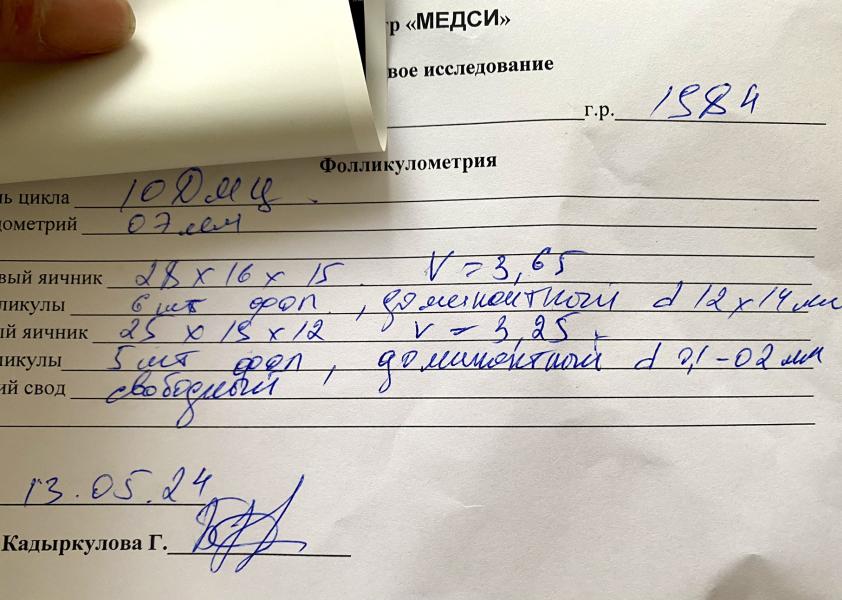 тр «МЕДСИ»
вое исследование
г.р. 1984
Фолликулометрия
нь цикла 10 ДМЦ.
дометрий 07мм
вый яичник 28 х 16 х 15. V = 3,65
ликулы 6 шт фол , доминантный d 12 х 14 мм
ый яичник 25 х 15 х 12 V = 3,25.
ликулы 5 шт фол , доминантный d 0,1-02 мм
ий свод свободный
13.05.24
Кадыркулова Г.